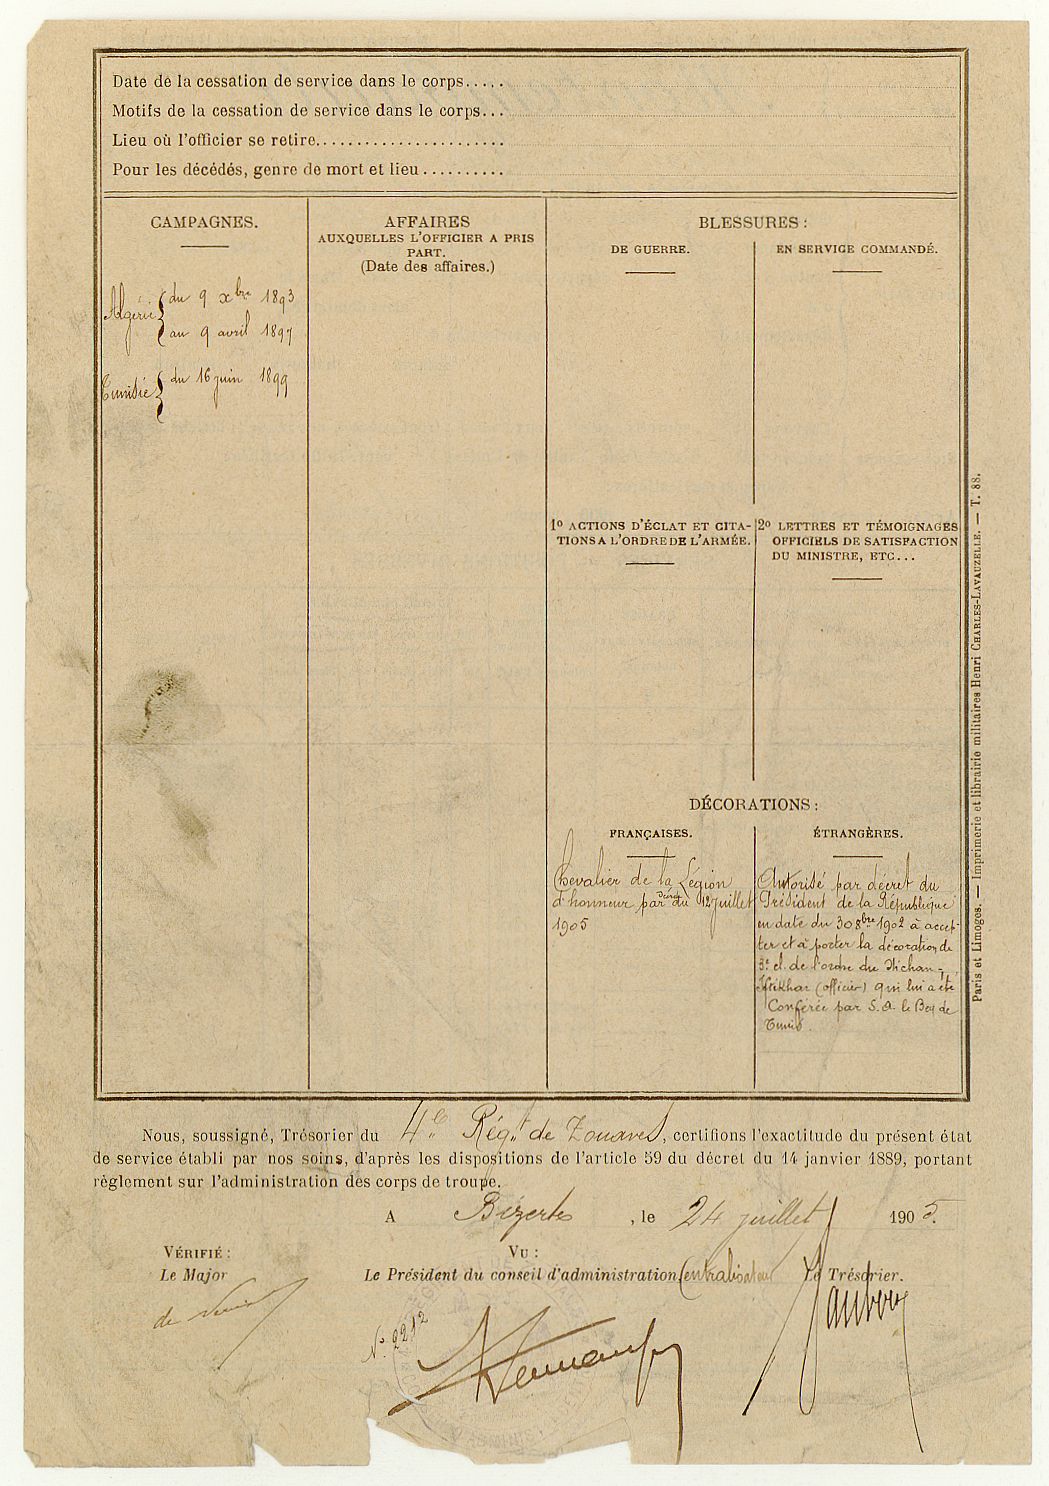 Date de la cessation de service dans le corps.....
Motifs de la cessation de service dans le corps...
Lieu où l'officier se retire.......................
Pour les décédés, genre de mort et lieu..........
CAMPAGNES.
Algérie { du 9 xbre 1893
au 9 avril 1897
Tunisie { du 16 juin 1899
AFFAIRES
AUXQUELLES L'OFFICIER A PRIS
PART.
(Date des affaires.)
BLESSURES:
DE GUERRE.
EN SERVICE COMMANDÉ.
1º ACTIONS D'ÉCLAT ET CITA-
TIONS A L'ORDRE DE L'ARMÉE.
2º LETTRES ET TÉMOIGNAGES
OFFICIELS DE SATISFACTION
DU MINISTRE, ETC...
DÉCORATIONS:
FRANÇAISES.
Chevalier de la Légion
d'honneur par décret du 12 juillet
1905
ÉTRANGÈRES.
Autorisé par décret du
Président de la République
en date du 30 8bre 1902 à accep-
ter et à porter la décoration de
3e cl. de l'ordre du Nichan-
Iftikhar (officier) qui lui a été
Conférée par S. A. le Bey de
Tunis.
Paris et Limoges. — Imprimerie et librairie militaires Henri CHARLES-LAVAUZELLE. — T. 88.
Nous, soussigné, Trésorier du 4e Régt de Zouaves, certifions l'exactitude du présent état
de service établi par nos soins, d'après les dispositions de l'article 59 du décret du 14 janvier 1889, portant
règlement sur l'administration des corps de troupe.
A Bizerte, le 24 juillet 1905.
VÉRIFIÉ:
Le Major
VU:
Le Président du conseil d'administration Centralisateur
Le Trésorier.
N° 2212